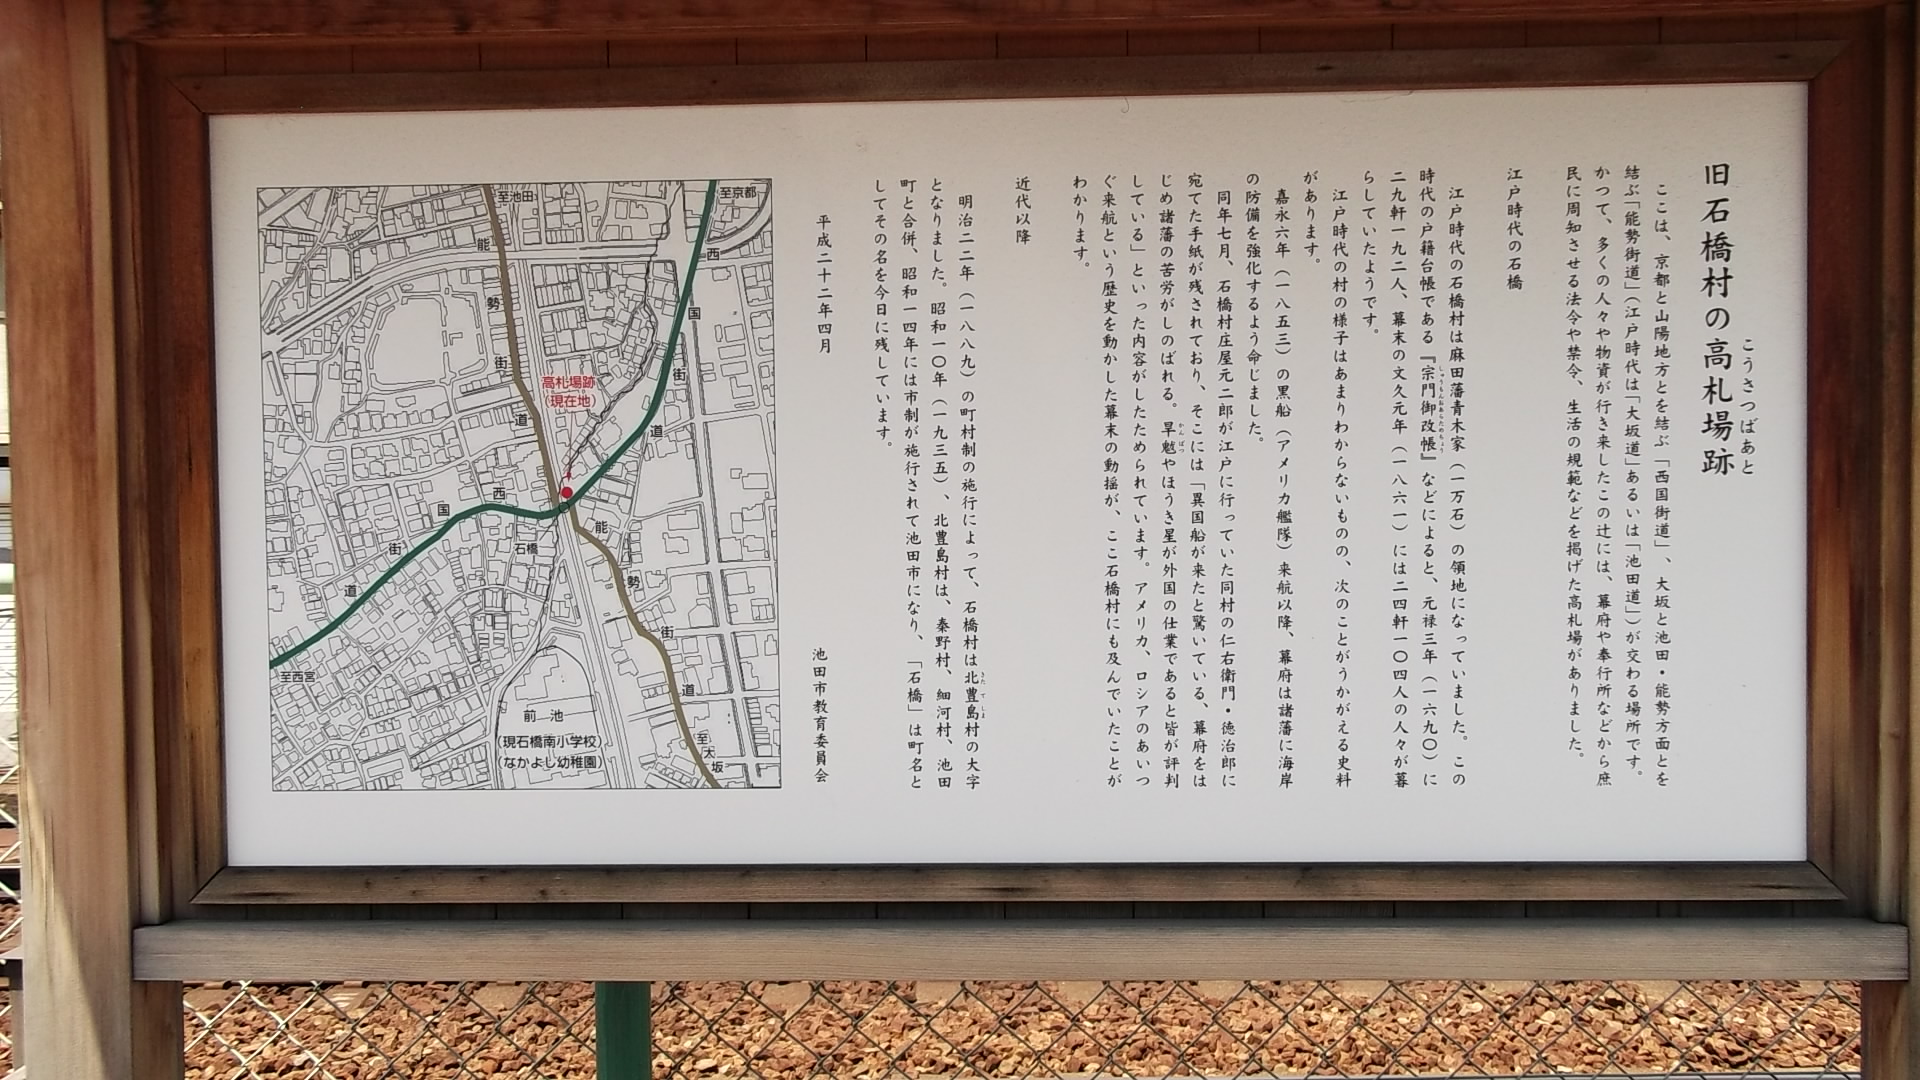 旧石橋村の高札場跡
こうさつばあと
ここは、京都と山陽地方とを結ぶ「西国街道」、大坂と池田・能勢方面とを
結ぶ「能勢街道」（江戸時代は「大坂道」あるいは「池田道」）が交わる場所です。
かつて、多くの人々や物資が行き来したこの辻には、幕府や奉行所などから庶
民に周知させる法令や禁令、生活の規範などを掲げた高札場がありました。
江戸時代の石橋
江戸時代の石橋村は麻田藩青木家（一万石）の領地になっていました。この
時代の戸籍台帳である『宗門御改帳』などによると、元禄三年（一六九〇）に
しゅうもんおあらためちょう
二九軒一九二人、幕末の文久元年（一八六一）には二四軒一〇四人の人々が暮
らしていたようです。
江戸時代の村の様子はあまりわからないものの、次のことがうかがえる史料
があります。
嘉永六年（一八五三）の黒船（アメリカ艦隊）来航以降、幕府は諸藩に海岸
の防備を強化するよう命じました。
同年七月、石橋村庄屋元二郎が江戸に行っていた同村の仁右衛門・徳治郎に
宛てた手紙が残されており、そこには「異国船が来たと驚いている、幕府をは
じめ諸藩の苦労がしのばれる。旱魃やほうき星が外国の仕業であると皆が評判
かんばつ
している」といった内容がしたためられています。アメリカ、ロシアのあいつ
ぐ来航という歴史を動かした幕末の動揺が、ここ石橋村にも及んでいたことが
わかります。
近代以降
明治二二年（一八八九）の町村制の施行によって、石橋村は北豊島村の大字
きたてしま
となりました。昭和一〇年（一九三五）、北豊島村は、秦野村、細河村、池田
町と合併、昭和一四年には市制が施行されて池田市になり、「石橋」は町名と
してその名を今日に残しています。
平成二十二年四月
池田市教育委員会
至池田
至京都
能勢街道
西国街道
高札場跡
（現在地）
西国街道
石橋
能勢街道
至西宮
前池
（現石橋南小学校）
（なかよし幼稚園）
至大坂